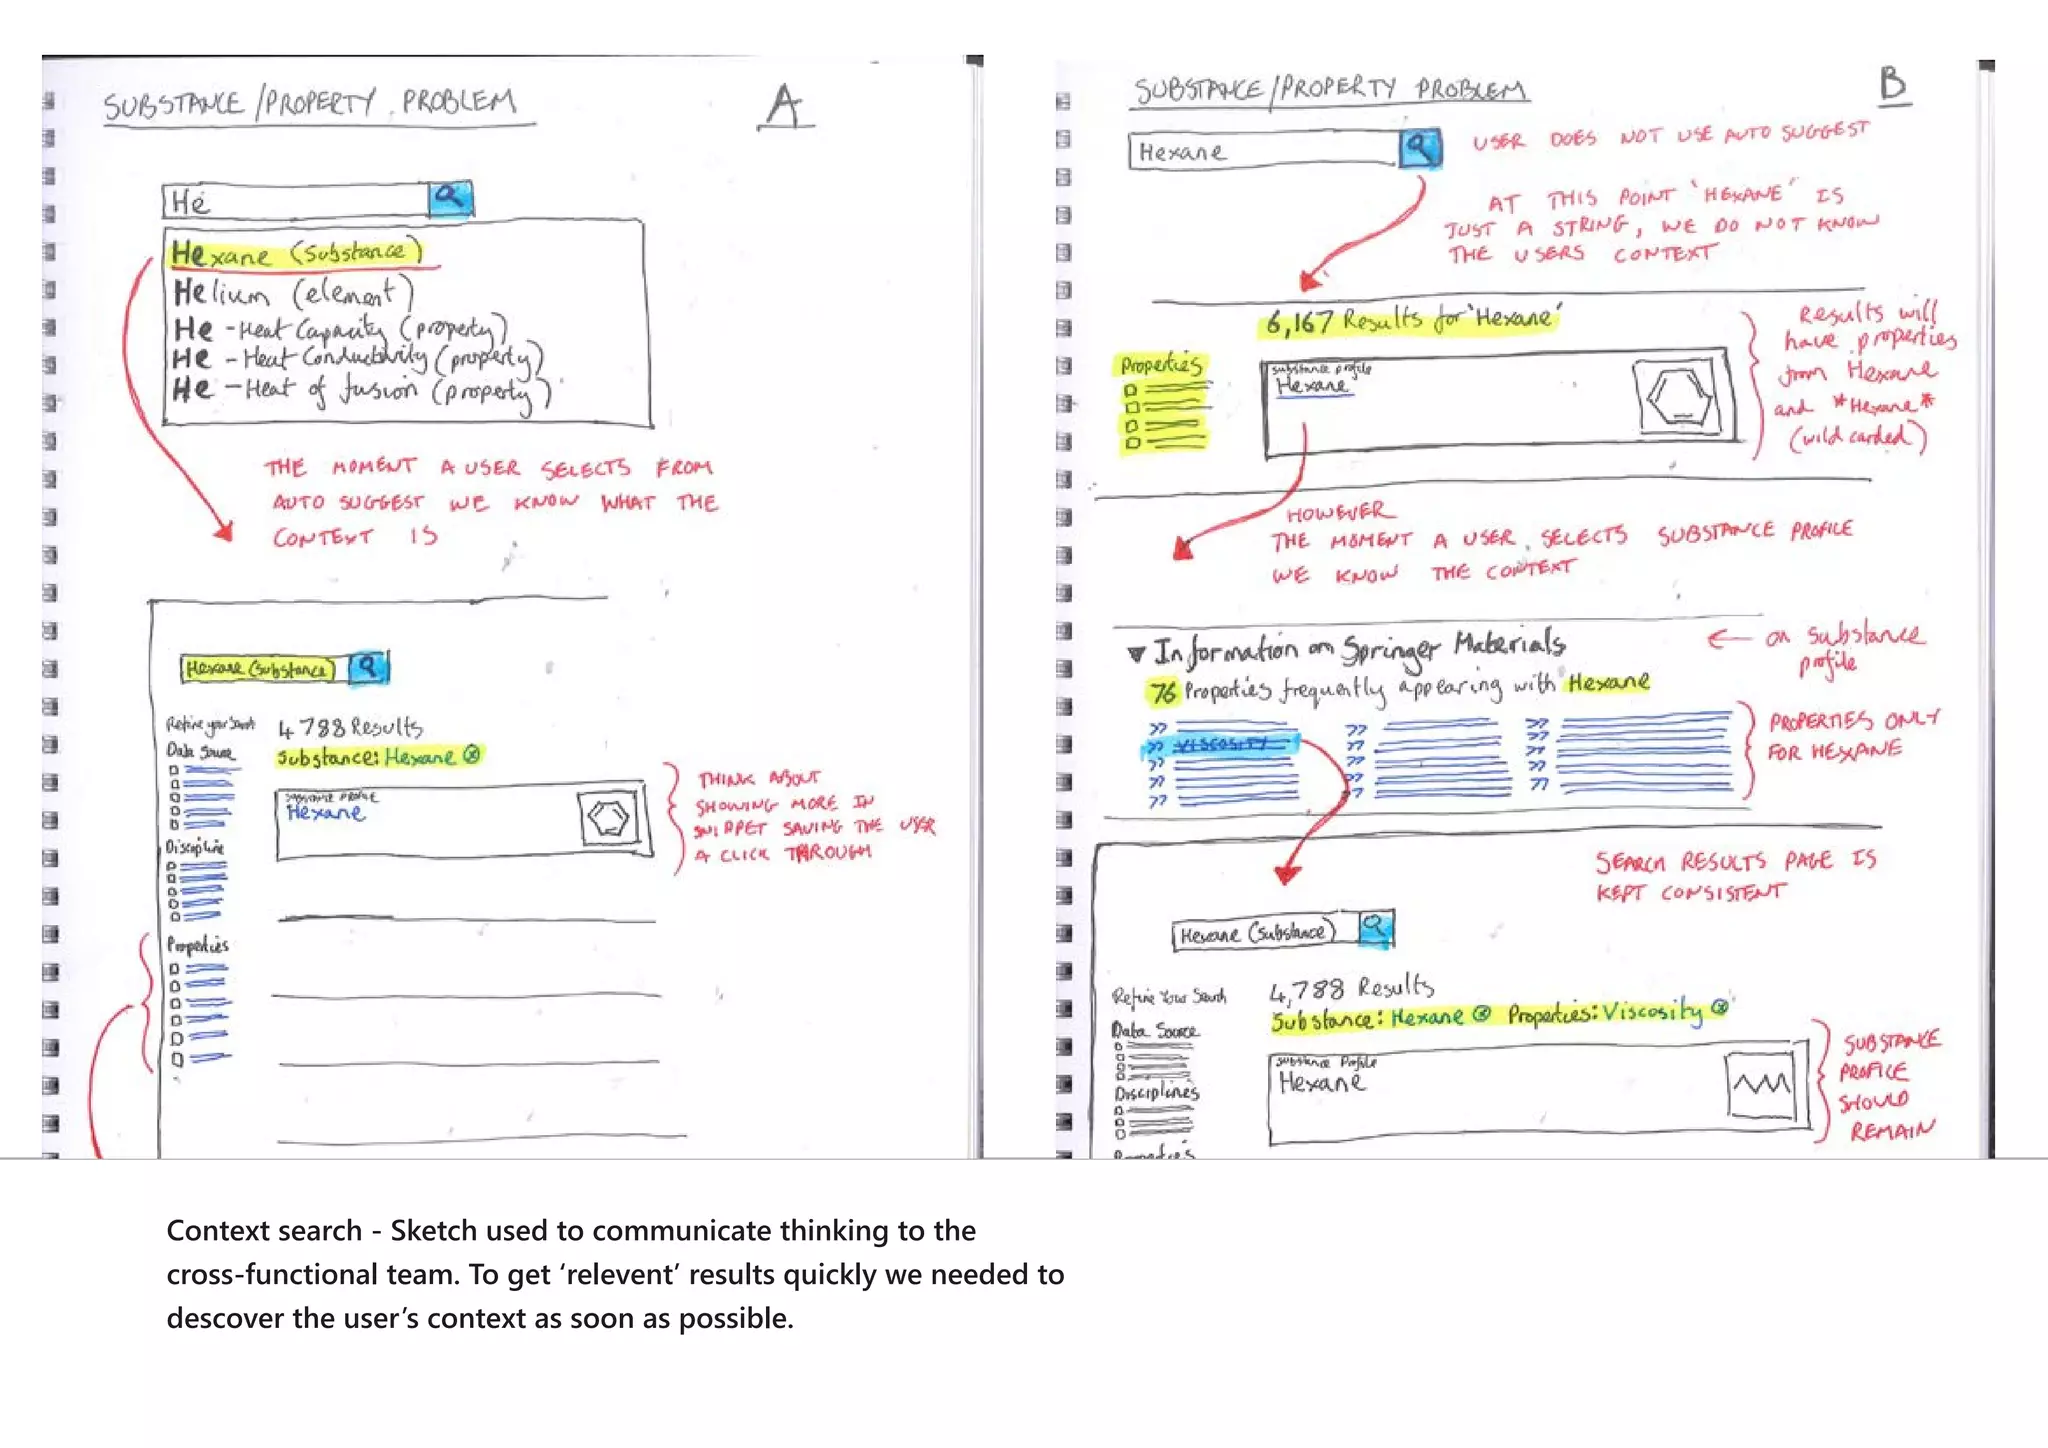 SUBSTANCE/PROPERTY PROBLEM
A
He
Hexane (Substance)
Helium (element)
He - Heat Capacity (property)
He - Heat Conductivity (property)
He - Heat of fusion (property)
THE MOMENT A USER SELECTS FROM
AUTO SUGGEST WE KNOW WHAT THE
CONTEXT IS
Hexane (Substance)
Refine your Search
4788 Results
Data Source
Substance: Hexane ⊗
SUBSTANCE PROFILE
Hexane
THINK ABOUT
SHOWING MORE IN
SNIPPET SAVING THE USER
A CLICK THROUGH
Discipline
Properties
SUBSTANCE/PROPERTY PROBLEM
B
Hexane
USER DOES NOT USE AUTO SUGGEST
AT THIS POINT 'HEXANE' IS
JUST A STRING, WE DO NOT KNOW
THE USERS CONTEXT
6,167 Results for 'Hexane'
Properties
substance profile
Hexane
Results will
have properties
from Hexane
and *Hexane*
(wild carded)
HOWEVER
THE MOMENT A USER SELECTS SUBSTANCE PROFILE
WE KNOW THE CONTEXT
▼ Information on Springer Materials
← on substance
profile
76 Properties frequently appearing with Hexane
VISCOSITY
PROPERTIES ONLY
FOR HEXANE
SEARCH RESULTS PAGE IS
KEPT CONSISTENT
Hexane (Substance)
Refine Your Search
4,788 Results
Data Source
Substance: Hexane ⊗ Properties: Viscosity ⊗
Substance Profile
Hexane
SUBSTANCE
PROFILE
SHOULD
REMAIN
Disciplines
Properties
Context search - Sketch used to communicate thinking to the
cross-functional team. To get ‘relevent’ results quickly we needed to
descover the user’s context as soon as possible.